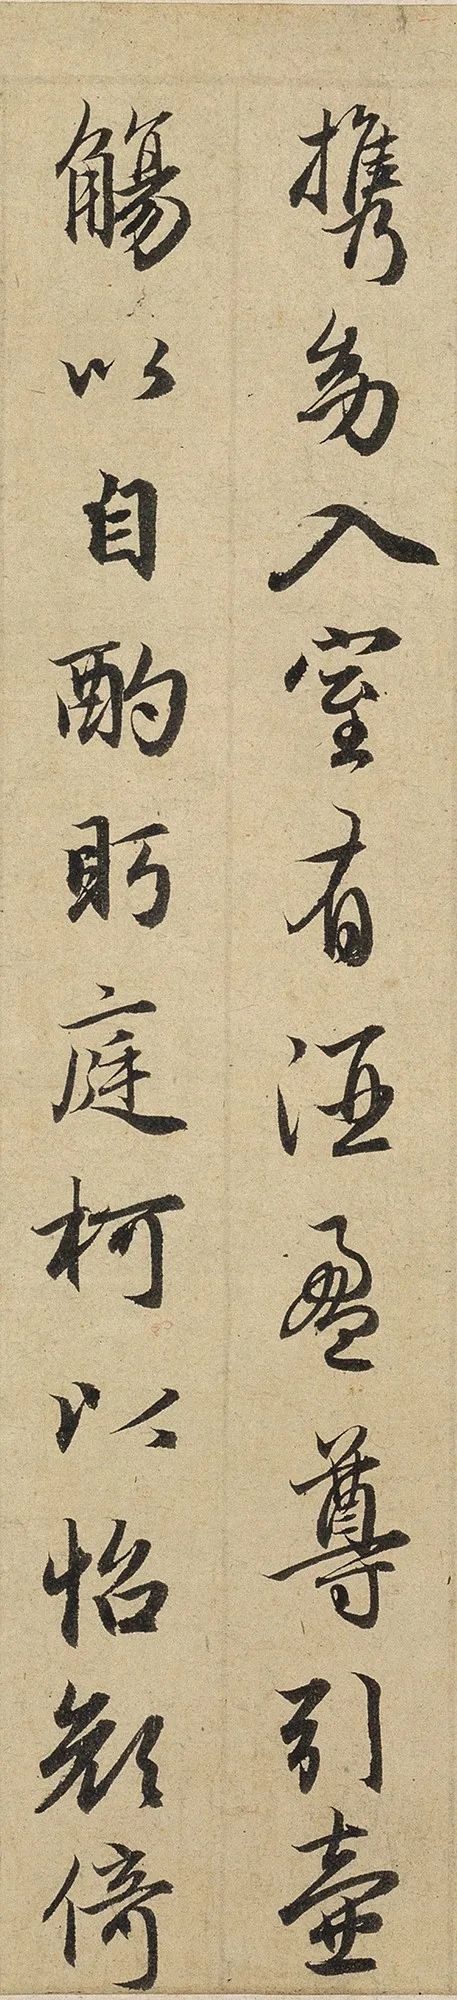 携幼入室有酒盈尊引壺
觴以自酌眄庭柯以怡顏倚